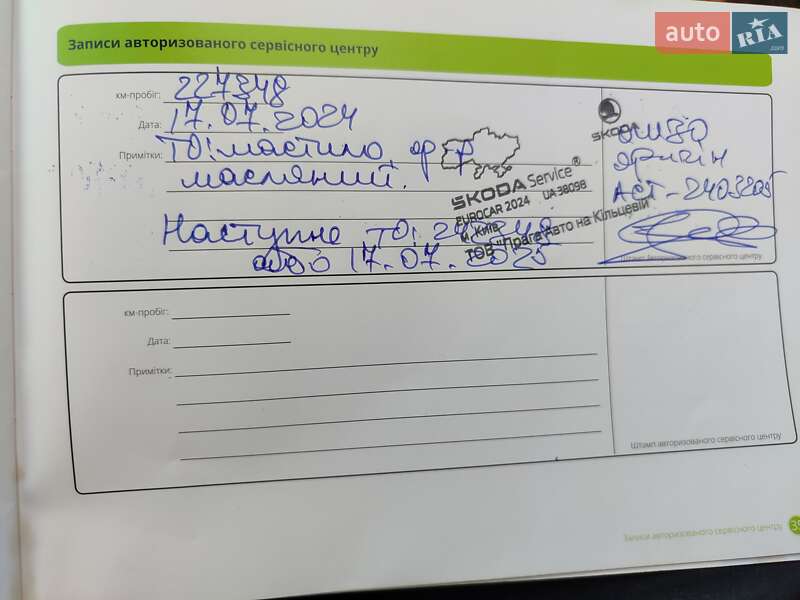 auto RIA .com
Записи авторизованого сервісного центру
км-пробіг: 227348
Дата: 17.07.2024
Примітки: ТО: мастило, ф-р
масляний.
Наступне ТО:
або 17.07.2025
ŠKODA Service®
EUROCAR 2024 UA 38098
м. Київ
ТОВ "Прага Авто на Кільцевій"
ŠKODA
АСТ-2403205
Штамп авторизованого сервісного центру
км-пробіг:
Дата:
Примітки:
Штамп авторизованого сервісного центру
Записи авторизованого сервісного центру